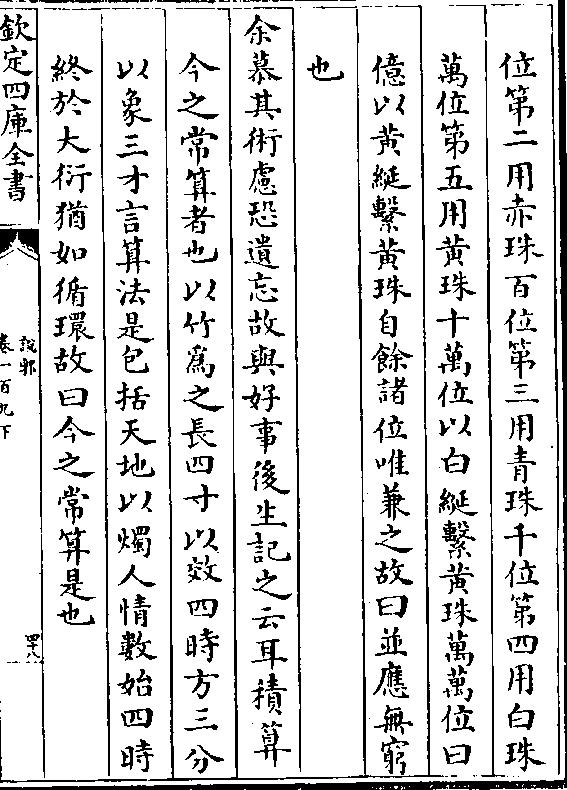 位第二用赤珠百位第三用青珠千位第四用白珠
萬位第五用黄珠十萬位以白綖繫黄珠萬萬位曰
億以黄綖繫黄珠自餘諸位唯兼之故曰並應無窮
也
余慕其術慮恐遺忘故與好事後生記之云耳積算
今之常算者也以竹為之長四寸以效四時方三分
以象三才言算法是包括天地以燭人情數始四時
終於大衍猶如循環故曰今之常算是也
欽定四庫全書
說郛
卷一百九下